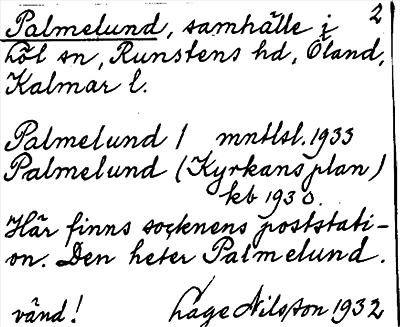 Palmelund, samhälle i 2
Löt sn, Runstens hd, Öland,
Kalmar l.
Palmelund / mntlsl. 1933
Palmelund (Kyrkans plan)
kb 1930.
Här finns socknens poststati-
on. Den heter Palmelund.
vänd! Lage Nilsson 1932